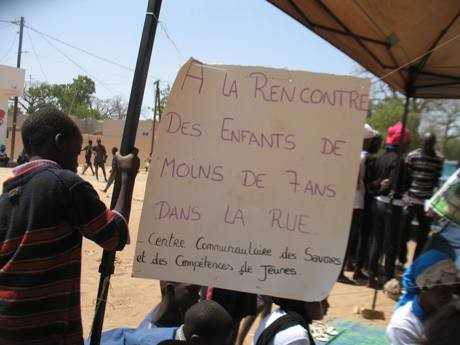 À LA RENCONTRE
DES ENFANTS DE
MOINS DE 7 ANS
DANS LA RUE.
_ CENTRE COMMUNAUTAIRE DES SAVOIRS
ET DES COMPÉTENCES DE JEUNES.